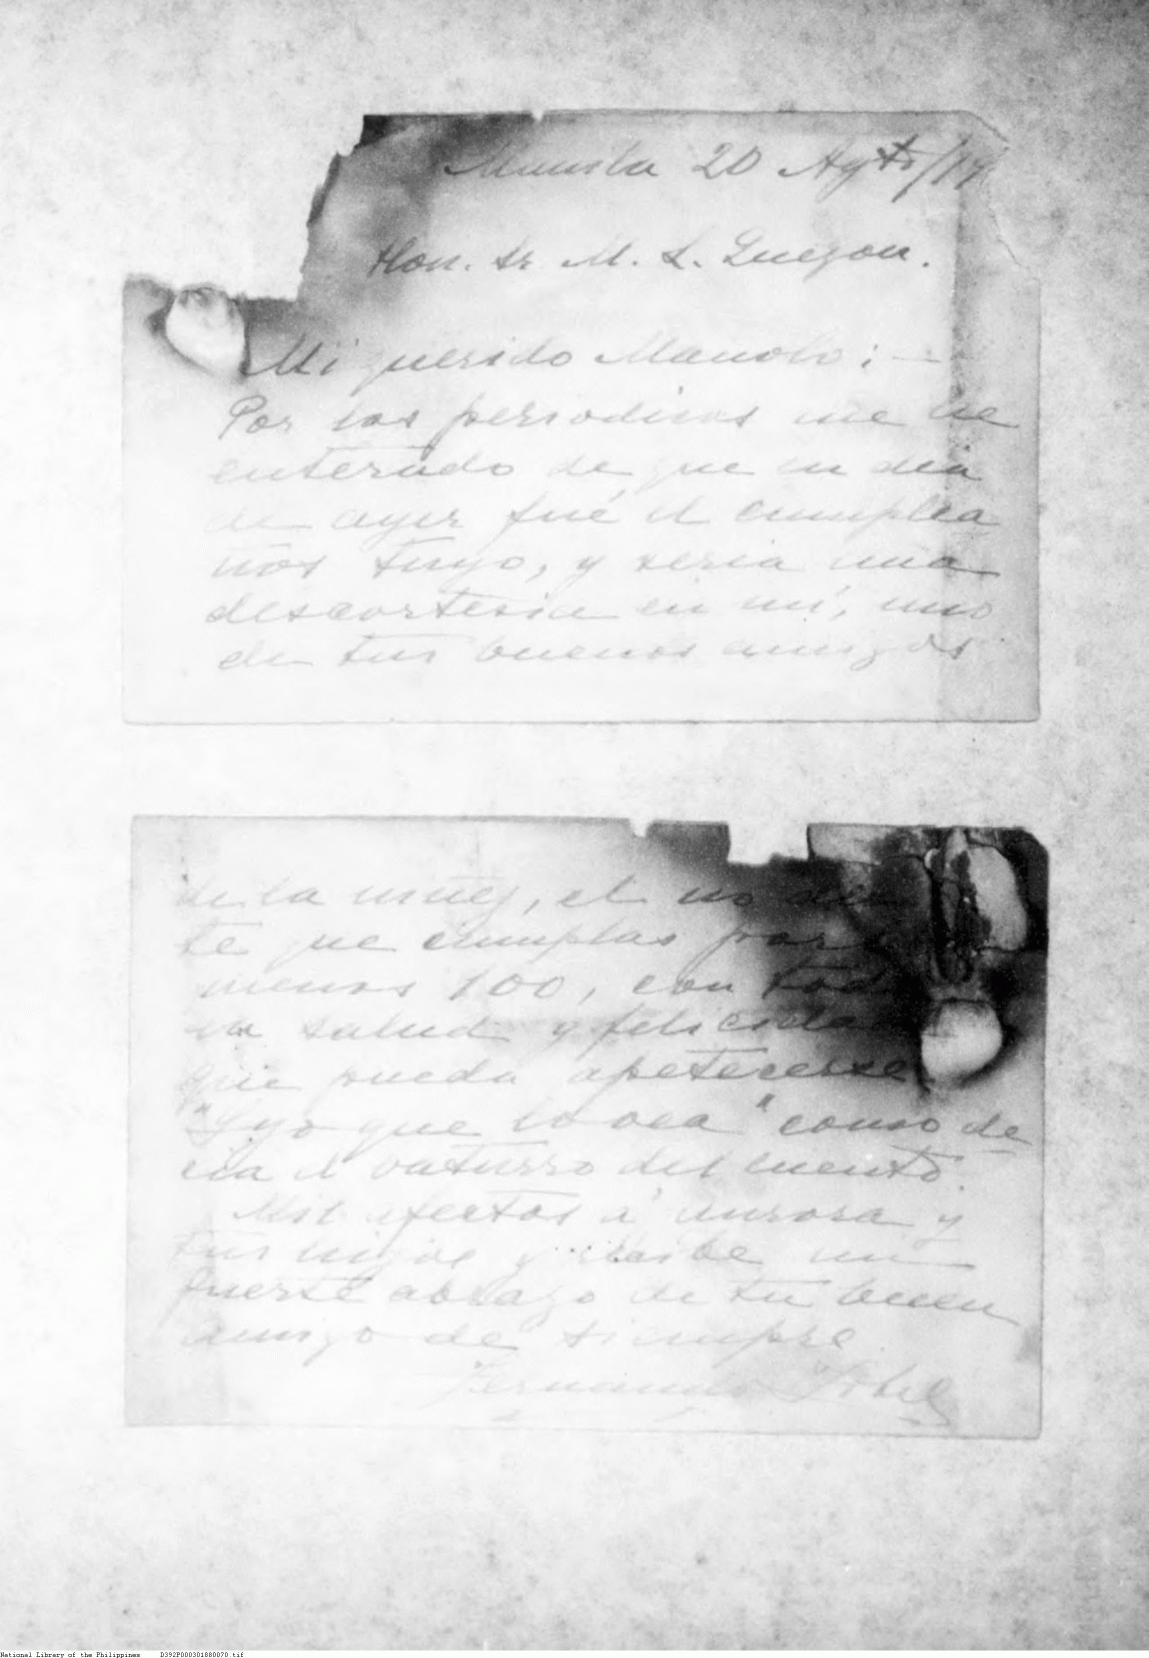 Manila 20 Agto/19
Hon. Sr. M. L. Quezon.
Mi querido Manolo: —
Por los periodicos me he
enterado de que en dia
de ayer fué el cumplea
ños tuyo, y seria una
descortesia en mi, uno
de tus buenos amigos
de la niñez, el no de
te que cumplas por
menos 100, con tod
la salud y felicidad
que pueda apetecerse
"Y yo que lo vea" como de
cia el baturro del cuento.
Mil afectos á Aurora y
tus hijos y recibe un
fuerte abrazo de tu buen
amigo de siempre
Fernando Zobel
National Library of the Philippines D392P000301880070.tif